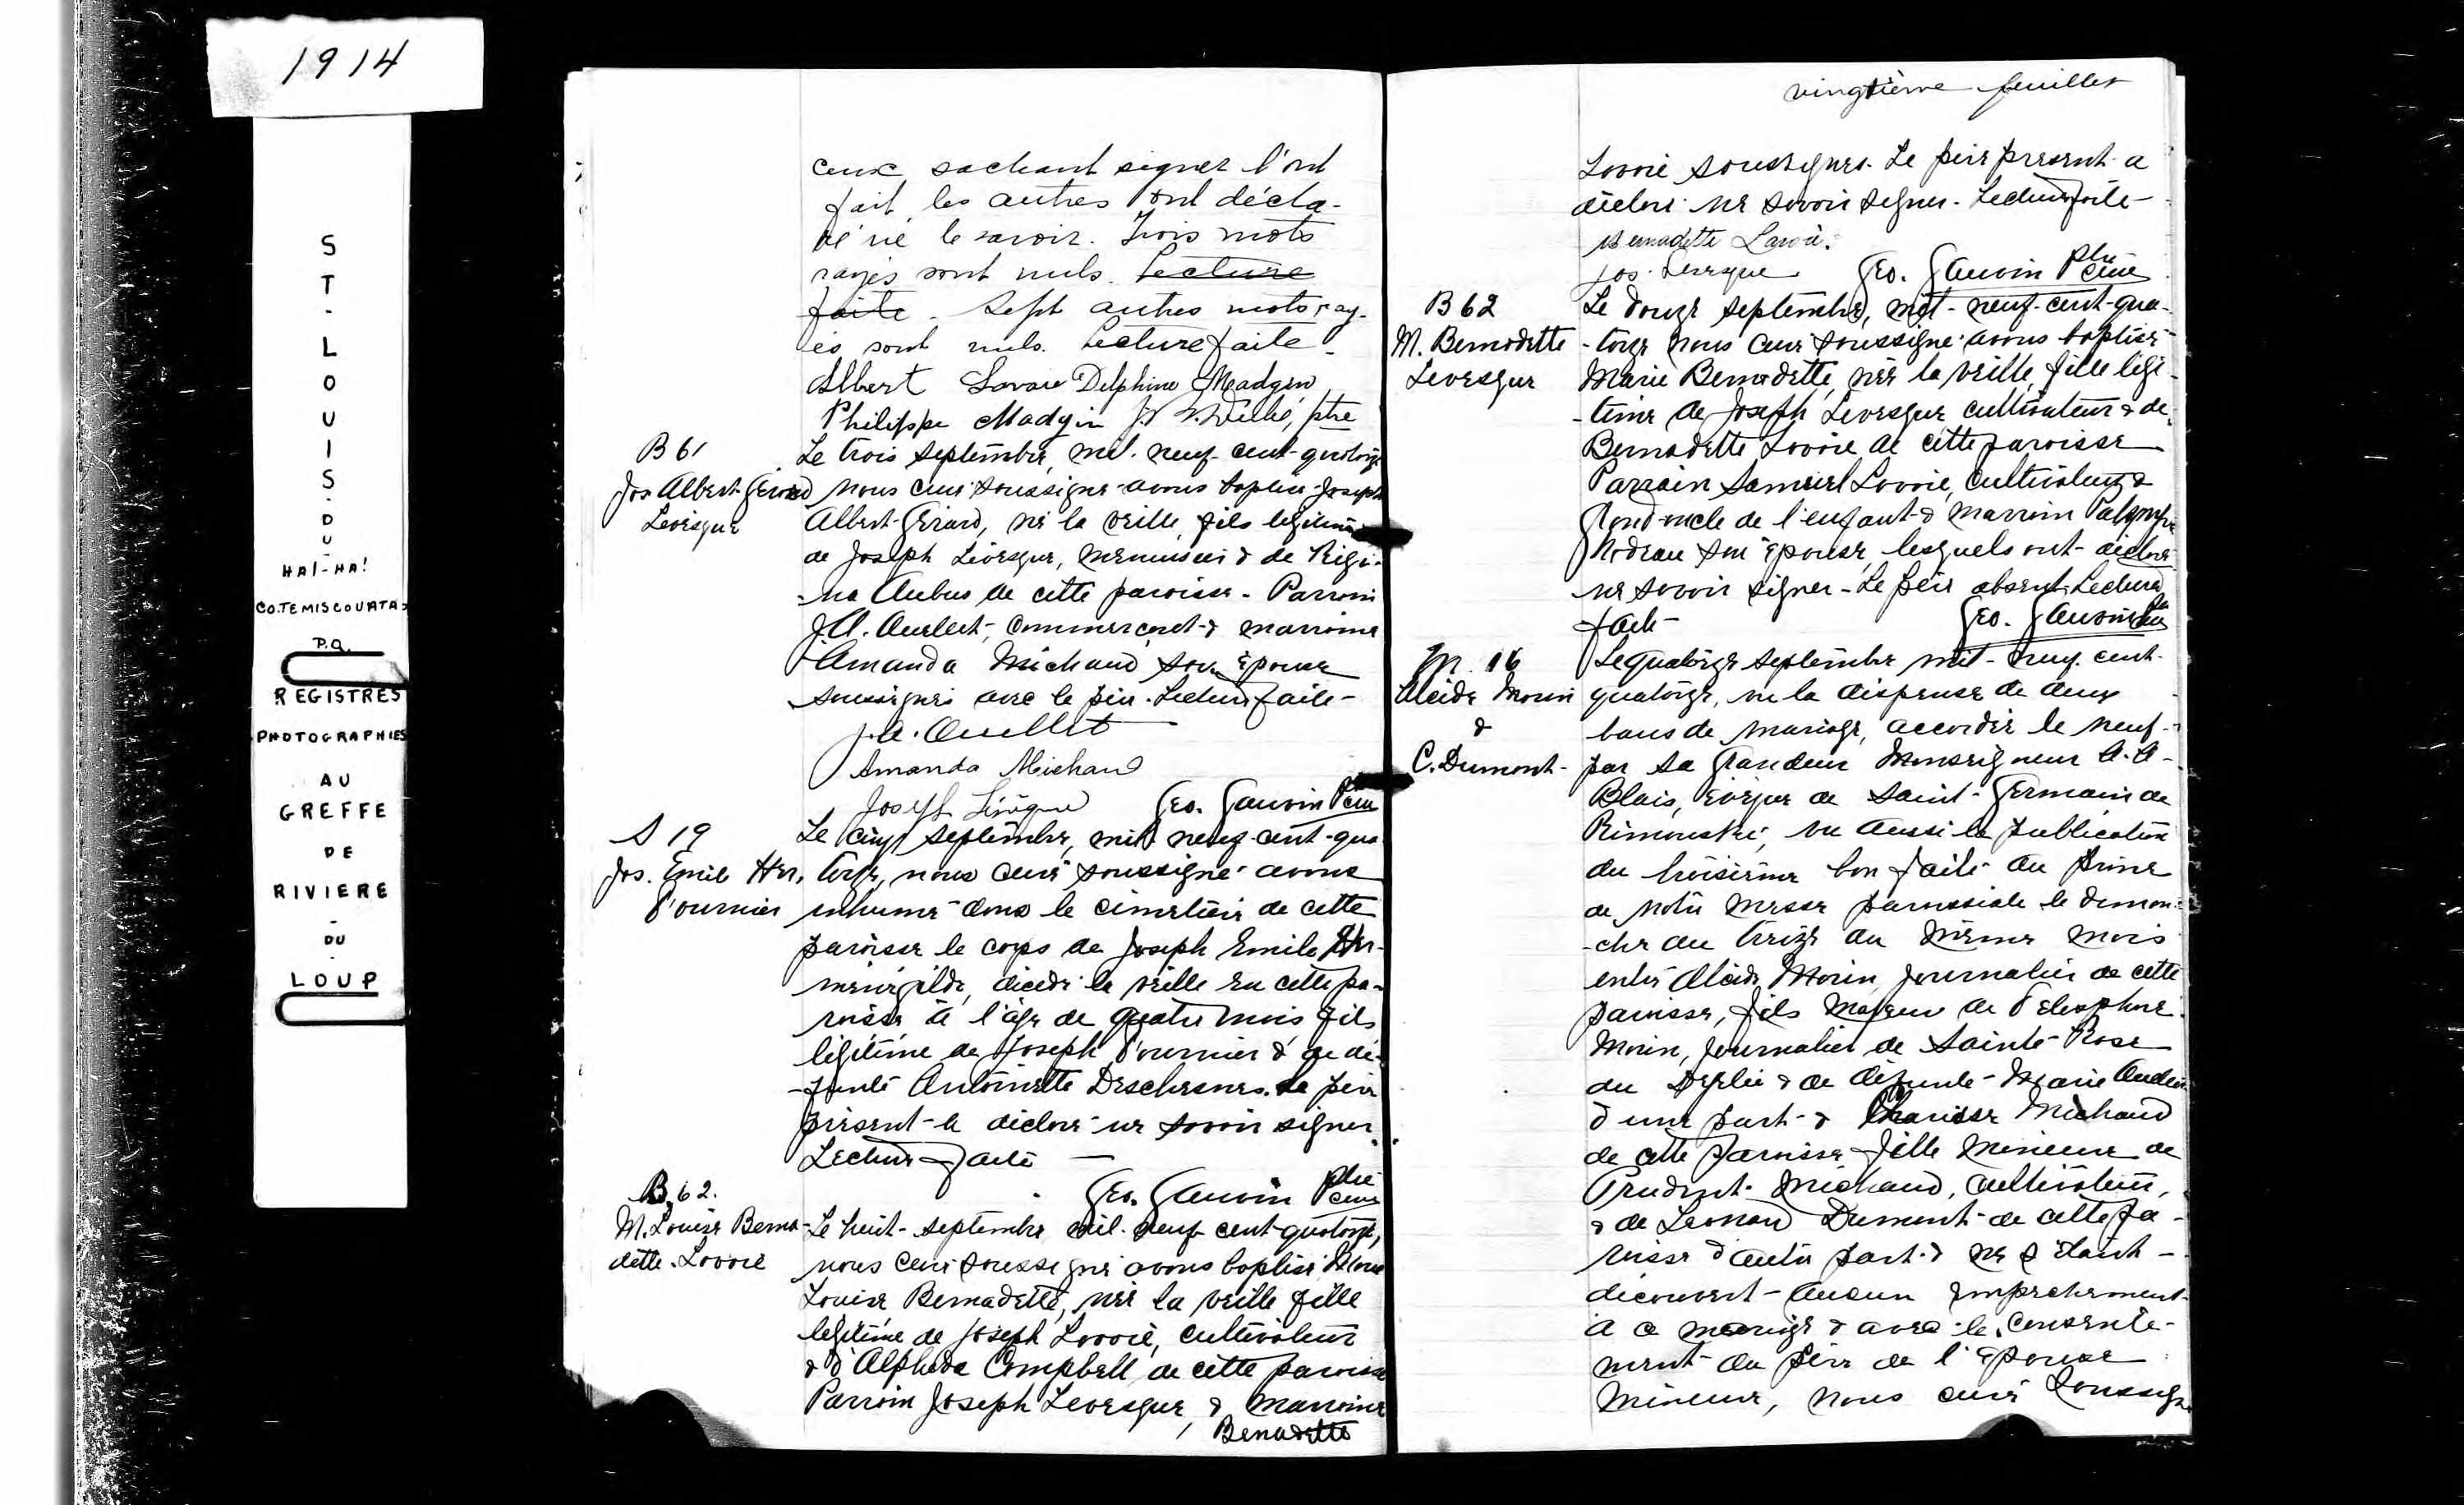 1914
ST-LOUIS-DU-
HA!-HA!
CO.TEMISCOUATA
P.Q.
REGISTRES
PHOTOGRAPHIES
AU
GREFFE
DE
RIVIERE
-
DU
-
LOUP
ceux sachant signer l'ont
fait, les autres ont décla-
ré ne le savoir. Trois mots
rayés sont nuls. Lecture
faite. Sept autres mots ray-
és sont nuls. Lecture faite.
Albert Lavoie Delphine Madgin
Philippe Madgin ptre
B 61
Jos Albert Gérard
Levesque
Le trois septembre, mil-neuf-cent-quatorze
nous curé soussigné avons baptisé Joseph
Albert-Gérard, né la veille, fils légitime
de Joseph Lévesque, menuisier & de Régi-
-na Aubus de cette paroisse - Parrain
J.A. Ouellet, commerçant & marraine
Amanda Michaud son épouse
soussignés avec le père. Lecture faite -
J.A. Ouellet
Amanda Michaud
Joseph Lévesque Geo. Gauvin Ptre curé
S 19
Jos. Emile Her.
Fournier
Le cinq septembre, mil neuf-cent-qua
torze, nous curé soussigné avons
inhumé dans le cimetière de cette
paroisse le corps de Joseph Emile Her-
ménégilde, décédé la veille en cette pa-
roisse à l'âge de quatre mois fils
légitime de Joseph Fournier & de dé-
-funte Antoinette Deschesnes. Le père
présent a déclaré ne savoir signer.
Lecture faite -
Geo. Gauvin Ptre curé
B. 62.
M. Louise Berna-
dette. Lavoie
Le huit-septembre mil-neuf-cent-quatorze,
nous curé soussigné avons baptisé Marie
Louise Bernadette, née la veille fille
légitime de Joseph Lavoie, cultivateur
& d'Alpheda Campbell, de cette paroisse
Parrain Joseph Levesque, & marraine
Bernadette
vingtième feuillet
Lavoie soussignés. Le père présent a
déclaré ne savoir signer. Lecture faite -
Bernadette Lavoie.
Jos. Levesque Geo. Gauvin Ptre curé
B 62
M. Bernadette
Levesque
Le douze septembre, mil-neuf-cent-qua-
-torze nous curé soussigné avons baptisé
Marie Bernadette, née la veille, fille légi-
-time de Joseph Levesque cultivateur & de
Bernadette Lavoie de cette paroisse
Parrain Samuel Lavoie, cultivateur &
Grand-oncle de l'enfant & marraine
Nadeau son épouse, lesquels ont déclaré
ne savoir signer - Le père absent. Lecture
faite - Geo. Gauvin Ptre curé
M. 16
Alcide Morin
&
C. Dumont-
Le quatorze septembre mil-neuf-cent-
quatorze, vu la dispense de deux
bans de mariage, accordée le neuf-
par Sa Grandeur Monseigneur A.A-
Blais, évêque de Saint-Germain de
Rimouski, vu aussi la publication
du troisième ban faite au prône
de notre messe paroissiale le diman-
-che du treize du même mois
entre Alcide Morin, journalier de cette
paroisse, fils majeur de Télesphore
Morin, journalier de Sainte-Rose
du Dégelis & de défunte Marie
d'une part & Clarisse Michaud
de cette paroisse fille mineure de
Prudent Michaud, cultivateur,
& de Leonard Dumont de cette pa-
roisse d'autre part & ne s'étant -
découvert aucun empêchement
à ce mariage & avec le consente-
ment du père de l'épouse
mineure, nous curé soussigné